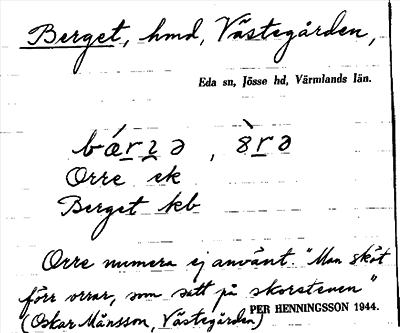 Berget, hmd, Västegården,
Eda sn, Jösse hd, Värmlands län.
bǽrzə , òrə
Orre ek
Berget kb
Orre numera ej använt. "Man sköt
förr orrar, som satt på skorstenen"
PER HENNINGSSON 1944.
(Oskar Månsson, Västegården)